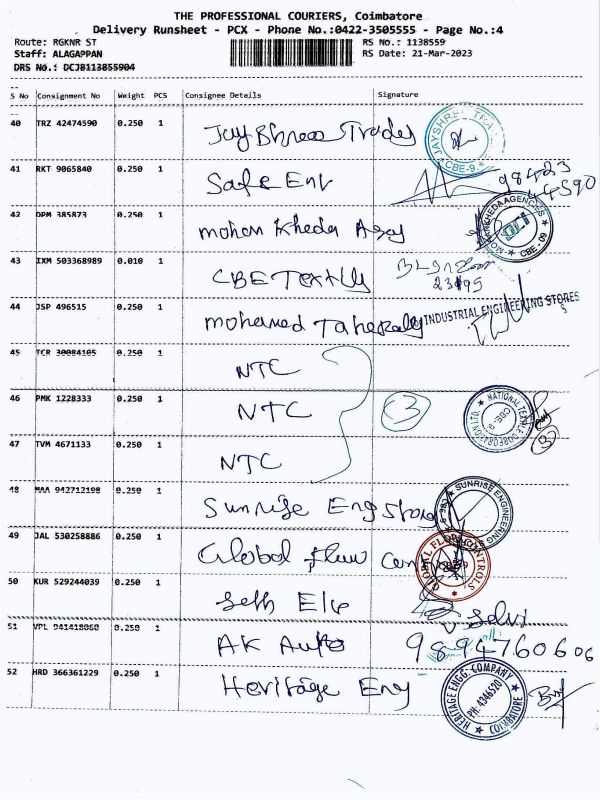 THE PROFESSIONAL COURIERS, Coimbatore
Delivery Runsheet - PCX - Phone No.:0422-3505555 - Page No.:4
Route: RGKNR ST RS No.: 1138559
Staff: ALAGAPPAN RS Date: 21-Mar-2023
DRS No.: DCJB113855904
S No Consignment No Weight PCS Consignee Details Signature
40 TRZ 42474590 0.250 1 Jay Shree Trades JAYSHREE CBE-9
41 RKT 9065840 0.250 1 Safe Env 98423 44590
42 DPM 385873 0.250 1 mohan Kheda Agcy MOHANKHEDA AGENCIES CBE - 09
43 IXM 503368989 0.010 1 CBE Textly 23195
44 JSP 496515 0.250 1 mohamed Taherally INDUSTRIAL ENGINEERING STORES
45 TCR 30084105 0.250 1 NTC
46 PMK 1228333 0.250 1 NTC 3 NATIONAL TEXTILE CORPORATION LTD. CBE-9. 3
47 TVM 4671133 0.250 1 NTC
48 MAA 942712198 0.250 1 Sunrise Eng Stores SUNRISE ENGINEERING CBE-9
49 JAL 530258886 0.250 1 Global Flow Con GLOBAL FLOW CONTROLS CBE-9
50 KUR 529244039 0.250 1 Seth Ele
51 VPL 941418060 0.250 1 AK Auto V Selvi 9894760606
52 HRD 366361229 0.250 1 Heritage Eng HERITAGE ENGG. COMPANY PH: 4346520 COIMBATORE